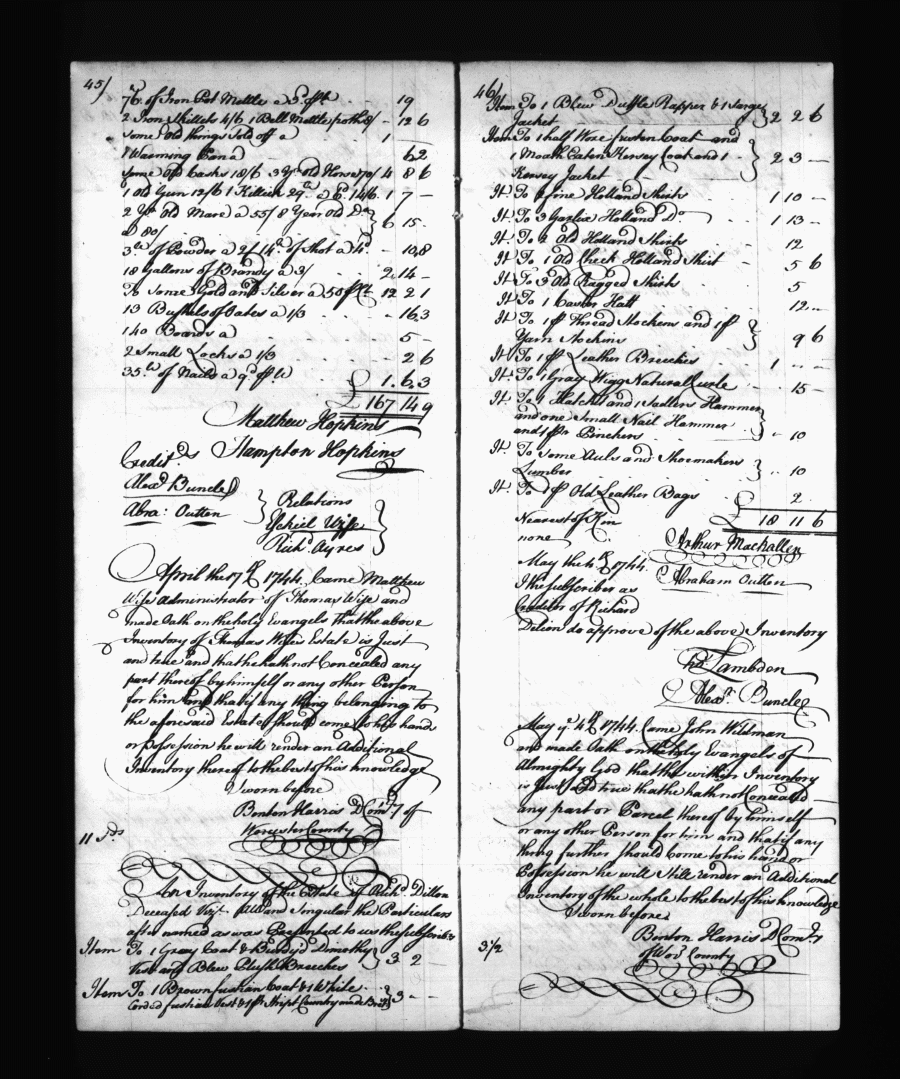 45/
76 of Iron Pot Mettle a 3d p lb 19
2 Iron Skillets 4/6 1 Bell Mettle pot 8/ 12 6
Some old things Sold off a 1
1 Warming Pan a 6 2
Some Old Casks 18/6 3 Yr old Horse 70/ 4 8 6
1 Old Gun 12/6 1 Killick 29 a 6 14/6 1 7 —
2 Yr Old Mare a 55/ 8 Year Old Do
a 80/ 6 15 —
3 lb of Powder a 2/ 14 lb of Shot a 4d 10,8
18 Gallons of Brandy a 3/ 2,14 —
To Some Gold and Silver a 50 p Ct 12 2 1
13 Bushels of Oates a 1/3 16,3
140 Boards a 5 —
2 Small Locks a 1/3 2 6
35 w of Nails a 9d p lb 1,6,3
£ 167 14 9
Matthew Hopkins
Hampton Hopkins
Creditrs
Alexd Buncle
Abra: Outten
Relations
Yekiel Wise
Richd Ayres
April the 17th 1744 Came Matthew
Wise Administrator of Thomas Wise and
made Oath on the holy Evangels that the above
Inventory of Thomas Wises Estate is Just
and true and that he hath not Concealed any
part thereof by himself or any other Person
for him and that if any thing belonging to
the aforesaid Estate should come to his hands
or possession he will render an Additional
Inventory thereof to the best of his knowledge
Sworn before
Benton Harris D Comry of
Worcester County
11 Sds
An Inventory of the Estate of Richd Dillon
Deceased Vizt. All and Singular the Particulars
after named as was Presented to us the subscribers
Item To 1 Gray Coat & Dimothy
Vest and Blew Plush Breeches 3 2 —
Item To 1 Brown fustian Coat & 1 White
Corded fustian Vest & 1 pr Stript Country made 3 —
46/
Item To 1 Blew Duffle Rapper & 1 Sarge
Jacket 2 2 6
Item To 1 half Wore fusten Coat and
1 Moath Eaten Kersey Coat and 1
Kersey Jacket 2 3 —
It To 2 fine Holland Shirts 1 10 —
It To 3 Garlix Holland Do 1 13 —
It To 2 Old Holland Shirts 12
It To 1 Old Check Holland Shirt 5 6
It To 3 Old Ragged Shirts 5
It To 1 Caster Hatt 12
It To 1 pr Thread Stockens and 1 pr
Yarn Stockins 9 6
It To 1 pr Leather Breeches 1
It To 1 Gray Wigg Natural Curle 15 —
It To 1 Hatchet and 1 Sadlers Hammer
and one Small Nail Hammer
and 1 pr Pinchers 10
It To Some Auls and Shoemakers
Lumber 10
It To 1 pr Old Leather Bags 2
£ 18 11 6
Nearest of Kin
none
Arthur Mackallen
Abraham Outten
May the 4th 1744
I the subscriber as
Creditor of Richard
Dillon do approve of the above Inventory
Thos Lambden
Alexr. Buncle
May ye 4th 1744 Came John Wildman
and made Oath on the Holy Evangels of
Almighty God that the within Inventory
is Just and true that he hath not Concealed
any part or Parcel thereof by himself
or any other Person for him and that if any
thing further should Come to his hand or
Possession he will Still render an Additional
Inventory of the whole to the best of his knowledge
Sworn before
Benton Harris D Comry
of Worr County
3 1/2